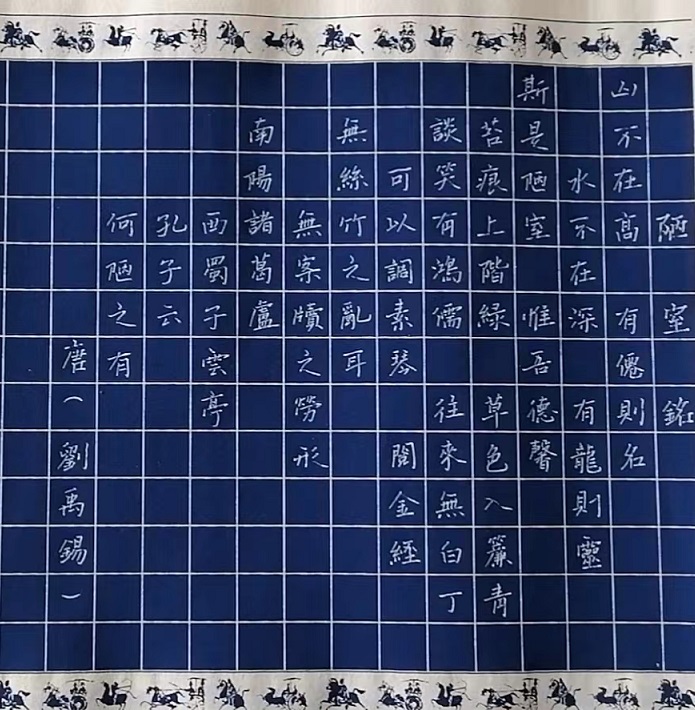 陋室銘
山不在高 有僊則名
水不在深 有龍則靈
斯是陋室 惟吾德馨
苔痕上階綠 草色入簾青
談笑有鴻儒 往來無白丁
可以調素琴 閱金經
無絲竹之亂耳
無案牘之勞形
南陽諸葛盧
西蜀子雲亭
孔子云
何陋之有
唐(劉禹錫)